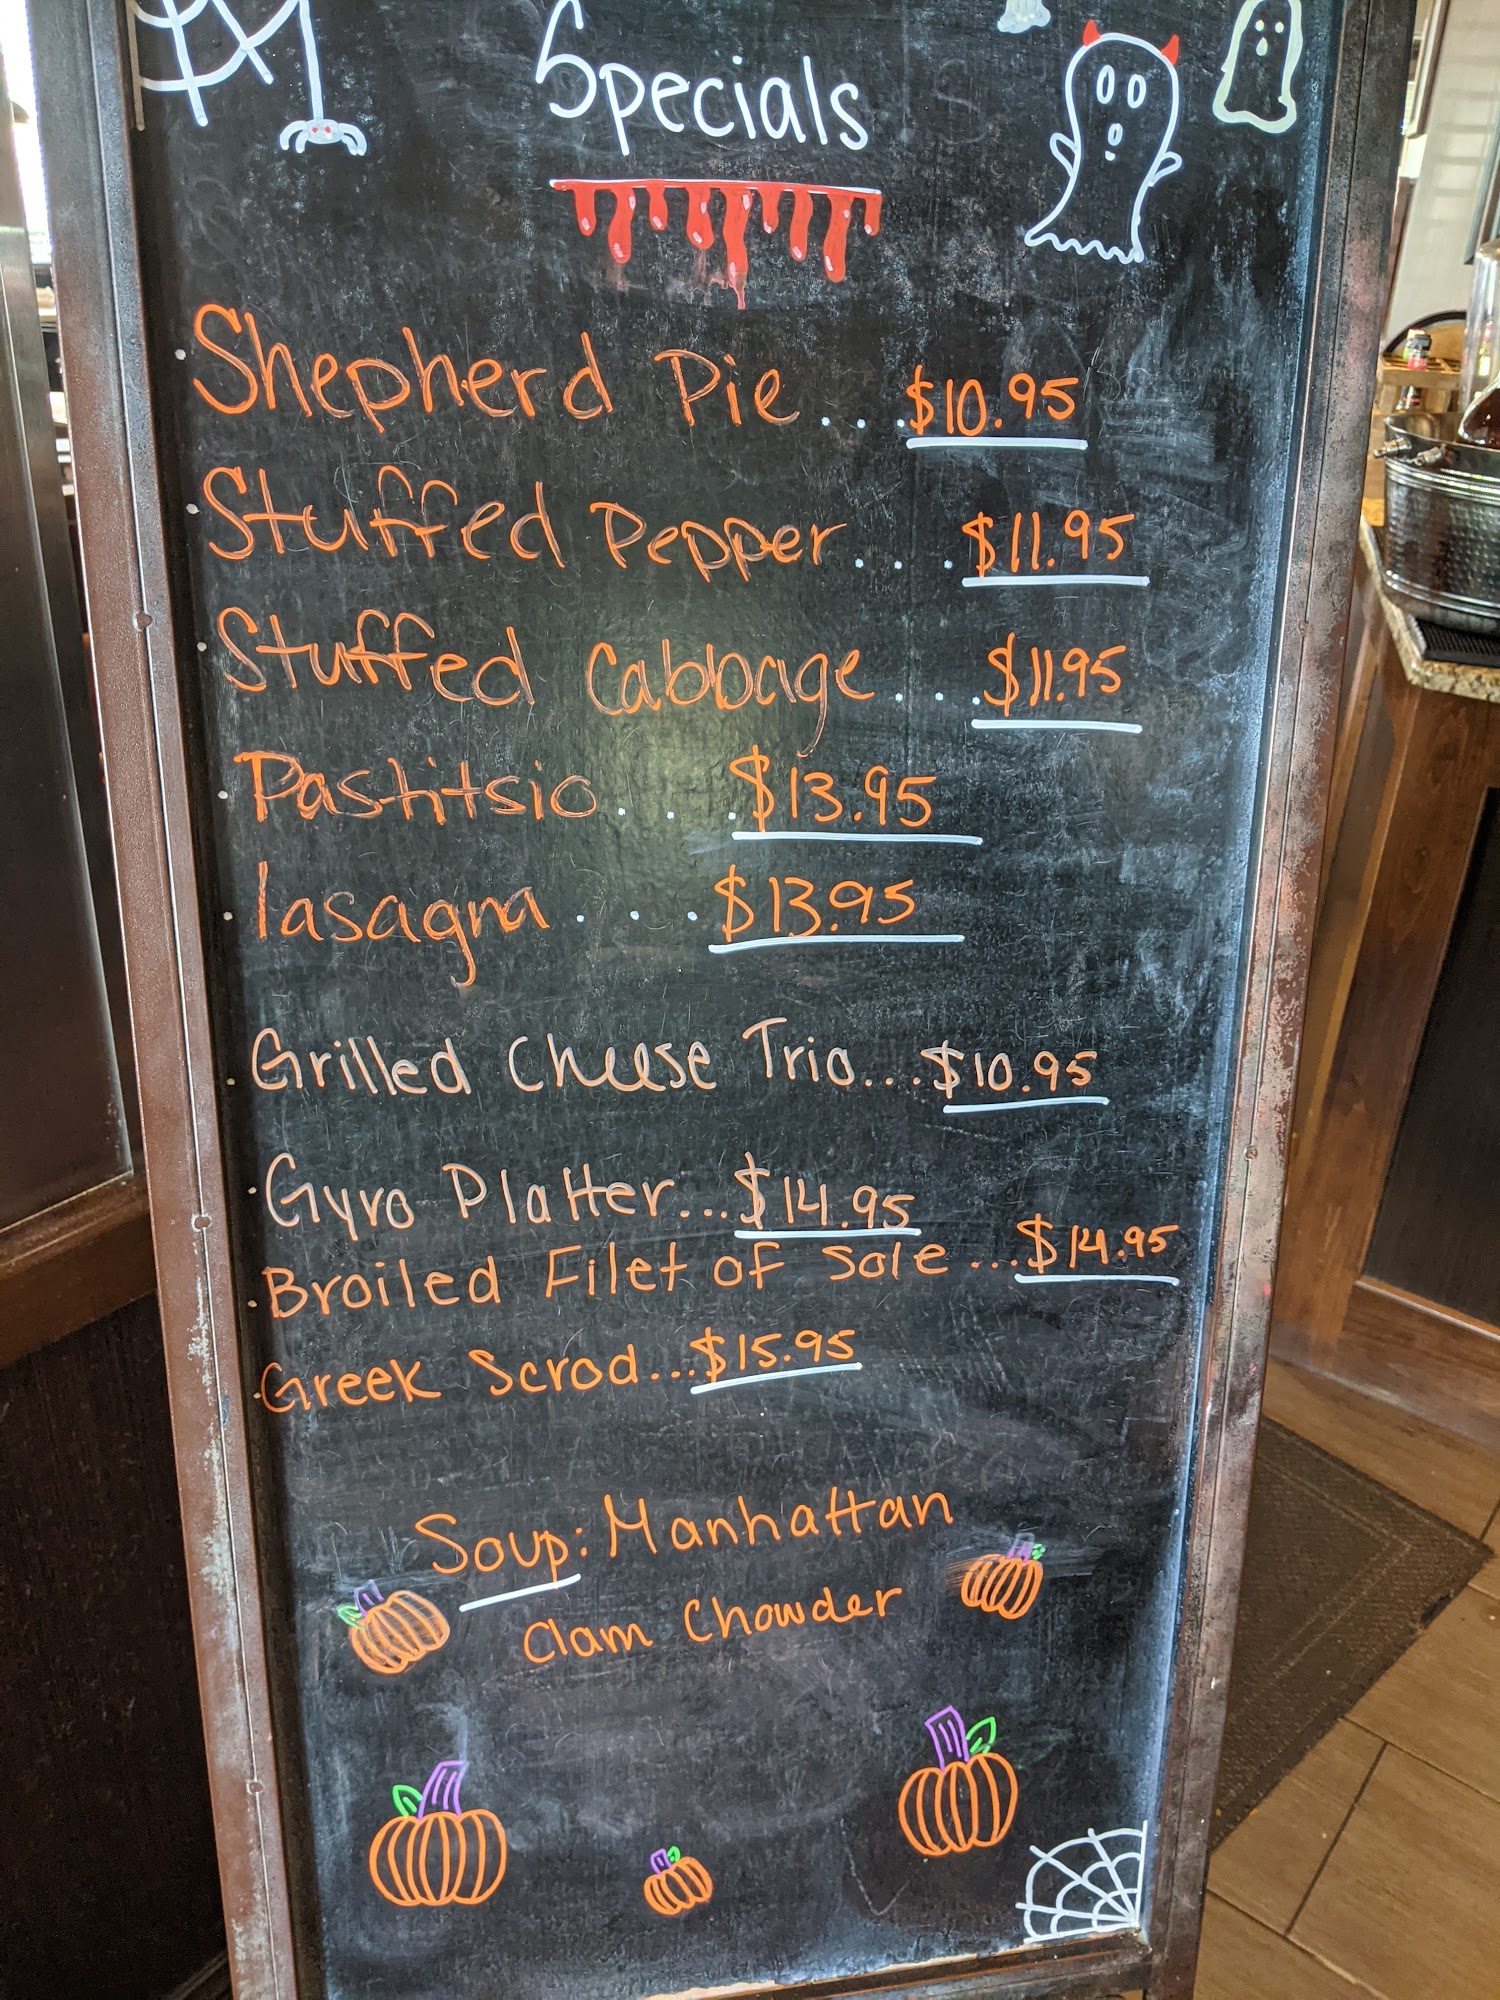 Specials
Shepherd Pie....$10.95
Stuffed Pepper....$11.95
Stuffed Cabbage....$11.95
Pastitsio....$13.95
lasagna....$13.95
Grilled Cheese Trio....$10.95
Gyro Platter...$14.95
Broiled Filet of Sole...$14.95
Greek Scrod...$15.95
Soup: Manhattan
Clam Chowder